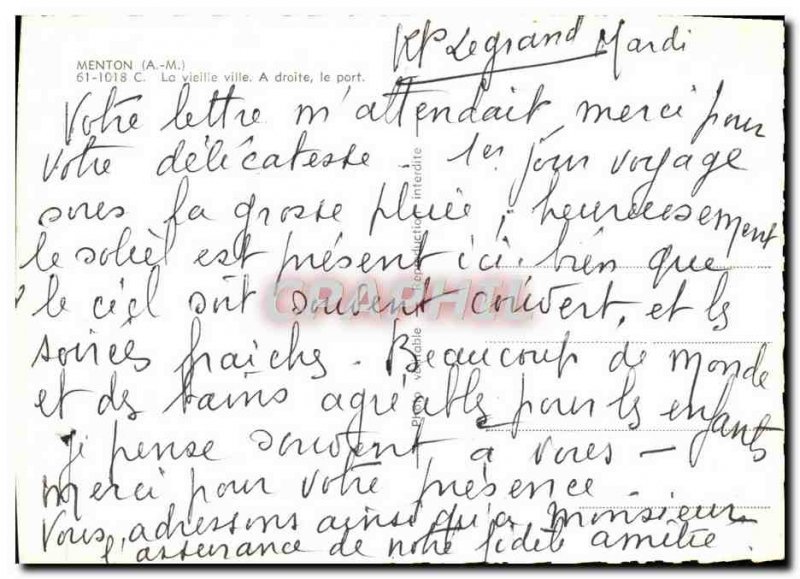 Kp Legrand Mardi
MENTON (A.-M.)
61-1018 C. La vieille ville. A droite, le port.
Votre lettre m'attendait, merci pour
votre délicatesse. 1er jour voyage
sous la grosse pluie, heureusement
le soleil est présent ici bien que
le ciel soit souvent couvert, et les
soirées fraîches. Beaucoup de monde
et des bains agréables pour les enfants
je pense souvent à vous —
merci pour votre présence
Vous adressons ainsi qu'à Monsieur
l'assurance de notre fidèle amitié.
Photo véritable Reproduction interdite
CPAPHIL